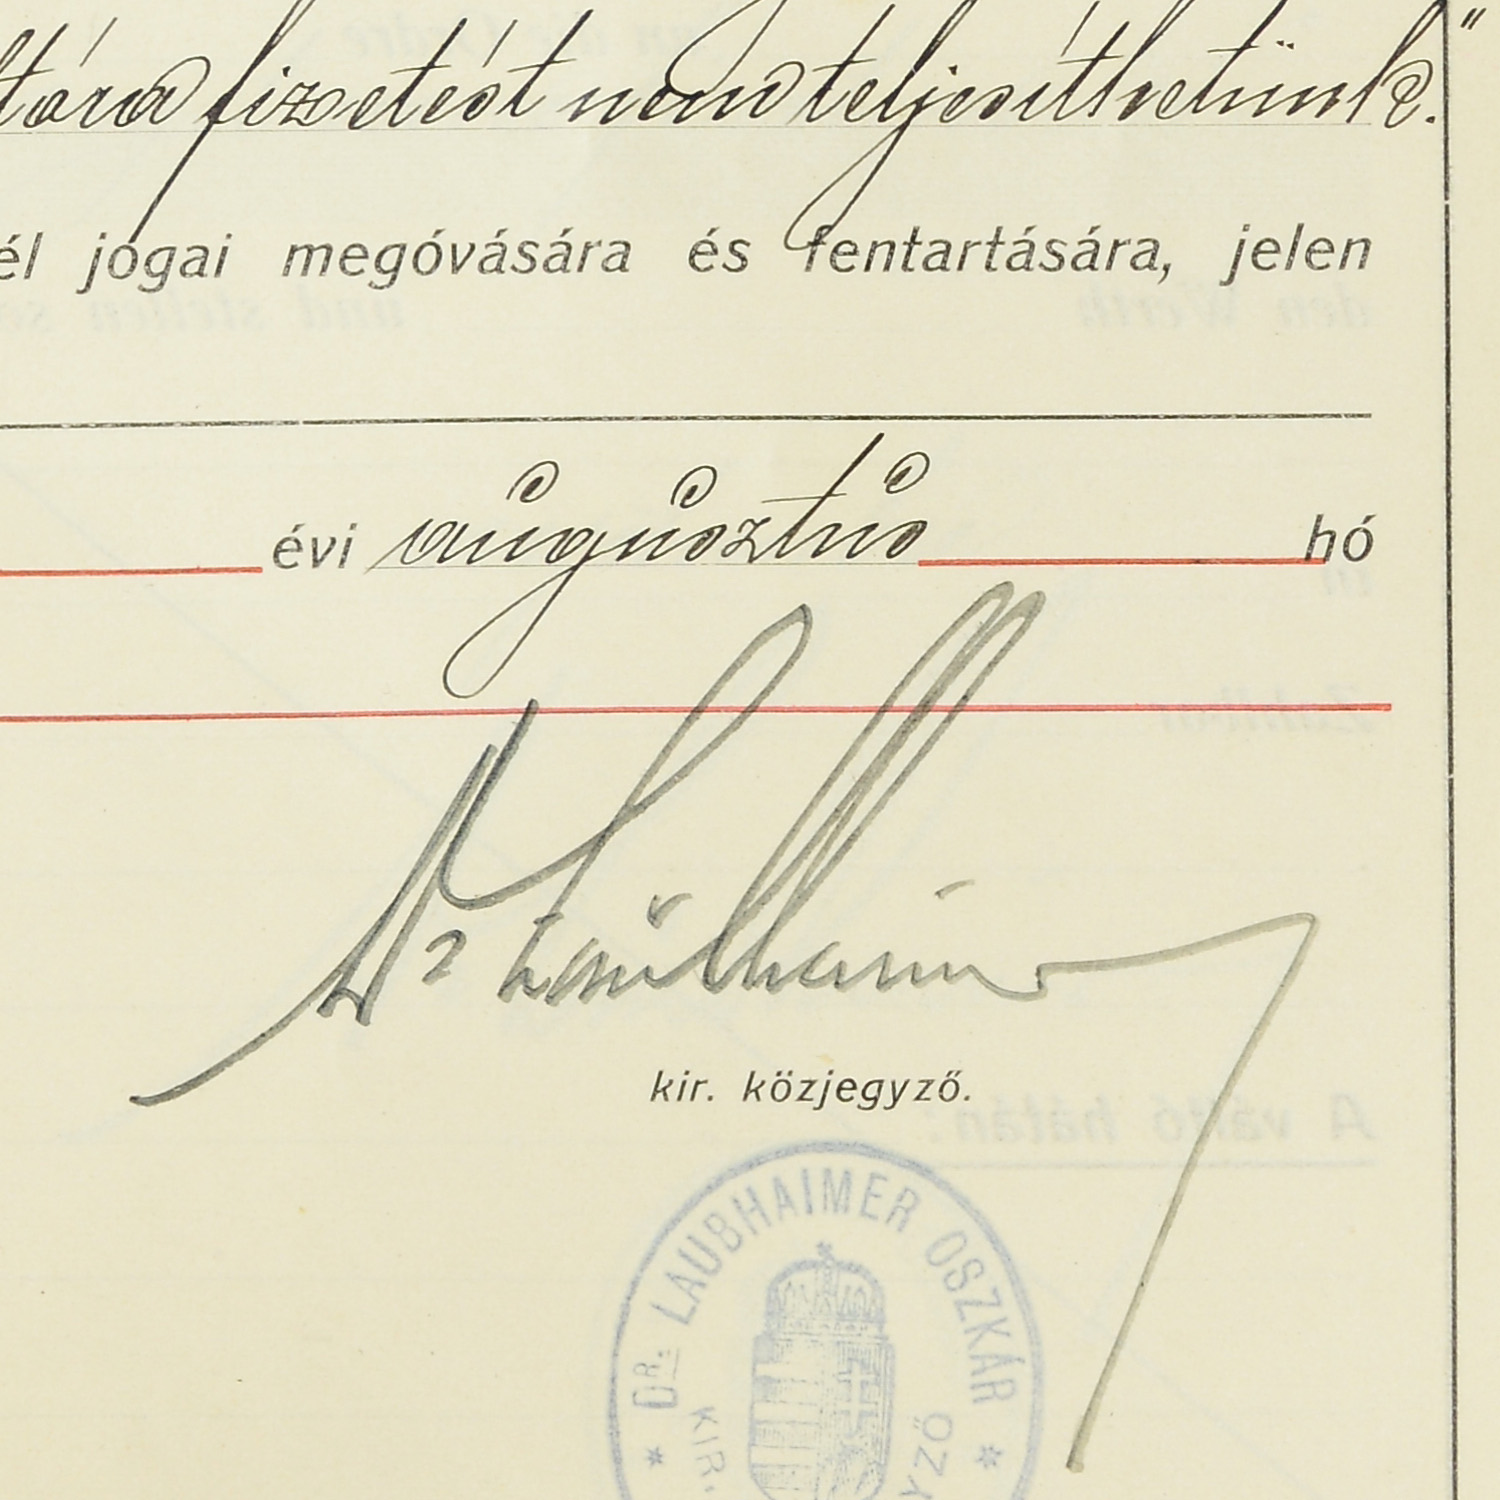 fizetést nem teljesíthetünk."
él jogai megóvására és fentartására, jelen
évi augusztus hó
Dr Laubhaimer
kir. közjegyző.
DR. LAUBHAIMER OSZKÁR
KIR. YZŐ